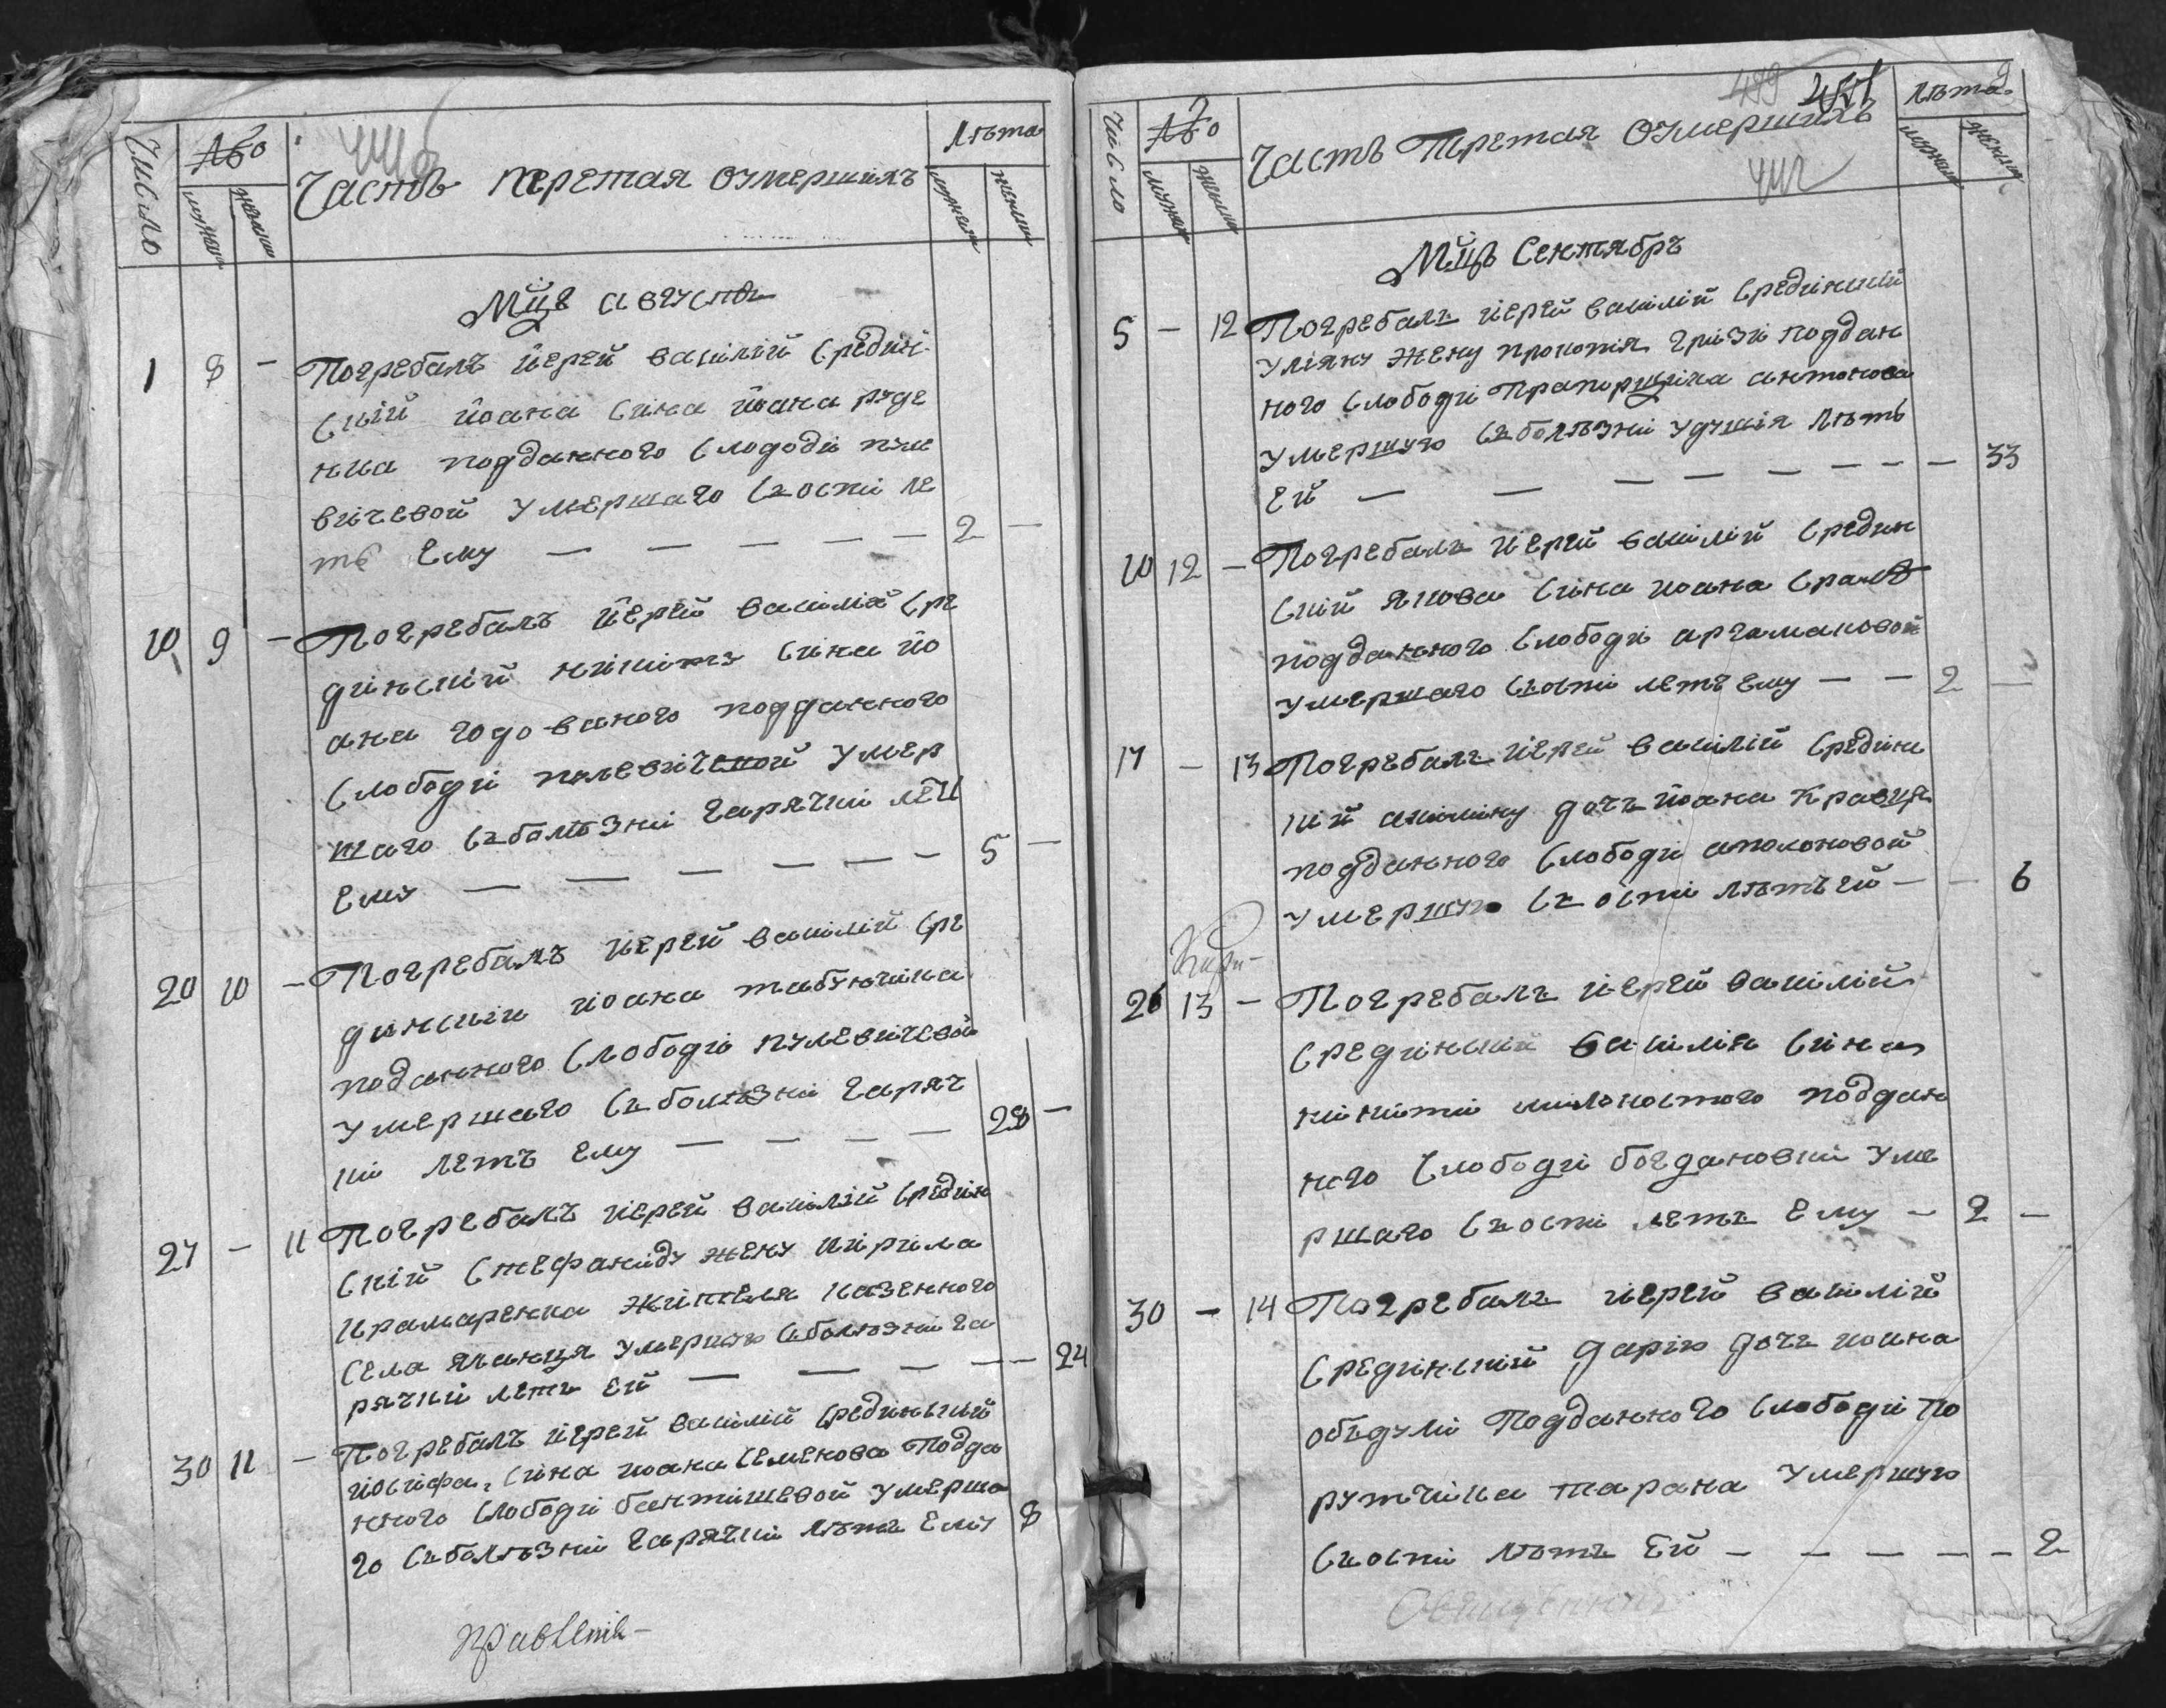 Число
№о
мужеск
женска
Часть третая Оумершихъ
Лѣта
мужеска
женска
Мцъ августъ
1 8 — Погребалъ іерей василій средин
скій іоана сина іоана руде
нка подданного слододи пуле
вичевой умершаго съ оспи ле
тъ ему — — — — — 2 —
10 9 — Погребалъ іерей василій сре
динскій никиту сина іо
ана годованого подданного
слободи пулевичевой умер
шаго съ болѣзни гарячки лѣт
ему — — — — — — 5 —
20 10 — Погребалъ іерей василій сре
динскій іоана табунчика
поданного слободи пулевичевой
умершаго съ болѣзни гаряч
ки летъ ему — — — — 28 —
27 — 11 Погребалъ іерей василій средин
скій стефаниду жену кирила
крамаренка жителя казенного
села яланця умершую съ болѣзни га
рячки летъ ей — — — — 24
30 11 — Погребалъ іерей василій средынскій
іосифа, сина иоана семенова подда
нного слободи бантишевой умерша
го съ болѣзни гарячки лѣтъ ему 8
Число
№о
мужеск
женска
499 451
Часть Третая Оумершихъ
Лѣта
мужеска
женска
Мцъ Сентябръ
5 — 12 Погребалъ іерей василій срединский
уліяну жену прокопія гризи поддан
ного слободи Прапорщика антонова
умершую съ болѣзни удушія лѣтъ
ей — — — — — — — — 33
10 12 — Погребалъ іерей василій средин
скій якова сина иоана
подданного слободи аргамаковой
умершаго съ оспи летъ ему — — 2 —
17 — 13 Погребалъ іерей василій средин
кій акилину дочь іоана Кравця
подданного слободи
умершую съ оспи лѣтъ ей — — 6
26 13 — Погребалъ іерей василій
срединскій василія сина
никити поддан
ного слободи богдановки уме
ршаго съ оспи летъ ему — 2 —
30 — 14 Погребалъ іерей василій
срединский дарію дочь иоана
Подданного слободи По
рутчика тарана умершую
съ оспи лѣтъ ей — — — — — 2